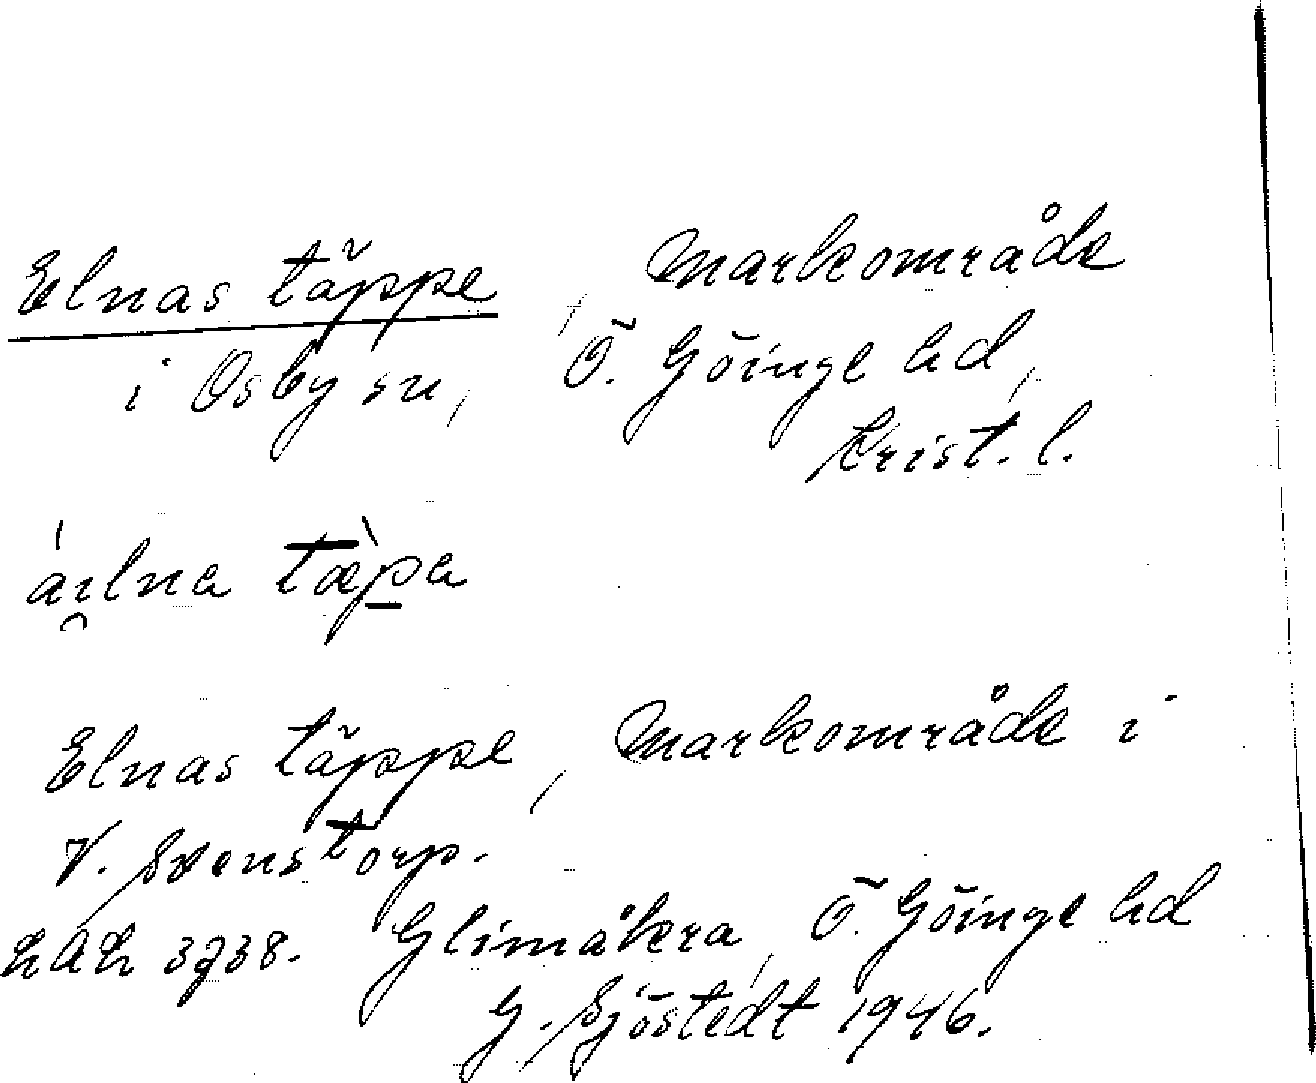 Elnas täppe, Markområde
i Osby sn, Ö. Göinge hd,
Krist. l.
täpa
Elnas täppe, Markområde i
V. Svenstorp.
LAL 3738. Glimåkra, Ö. Göinge hd
G. Sjöstedt 1946.